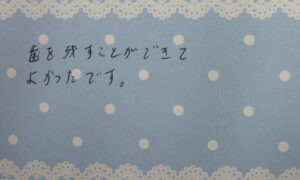 歯を残すことができて
よかったです。